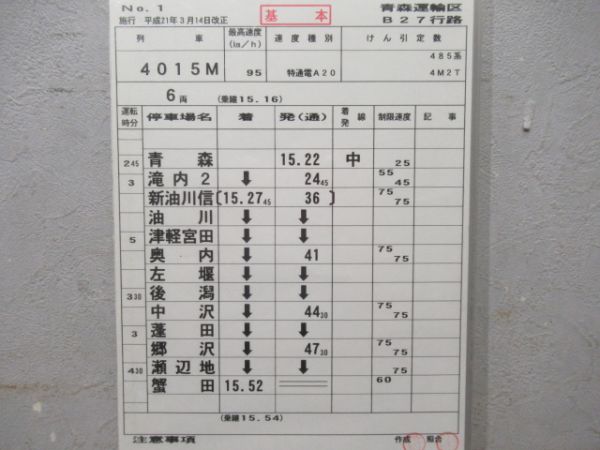 No. 1 基本 青森運輸区
施行 平成21年3月14日改正 B27行路
列車 最高速度(㎞/h) 速度種別 けん引定数
4015M 95 特通電A20 485系 4M2T
6両 (乗継15.16)
運転時分 停車場名 着 発(通) 着発線 制限速度 記事
245 青森 15.22 中 25
3 滝内2 ↓ 2445 55 45
新油川信 〔15.2745 36 〕 75 75
油川 ↓ ↓
5 津軽宮田 ↓ ↓
奥内 ↓ 41 75 75
左堰 ↓ ↓
330 後潟 ↓ ↓
中沢 ↓ 4430 75 75
3 蓬田 ↓ ↓
郷沢 ↓ 4730 75 75
430 瀬辺地 ↓ ↓ 75
蟹田 15.52 60
(乗継15.54)
注意事項 作成 照合